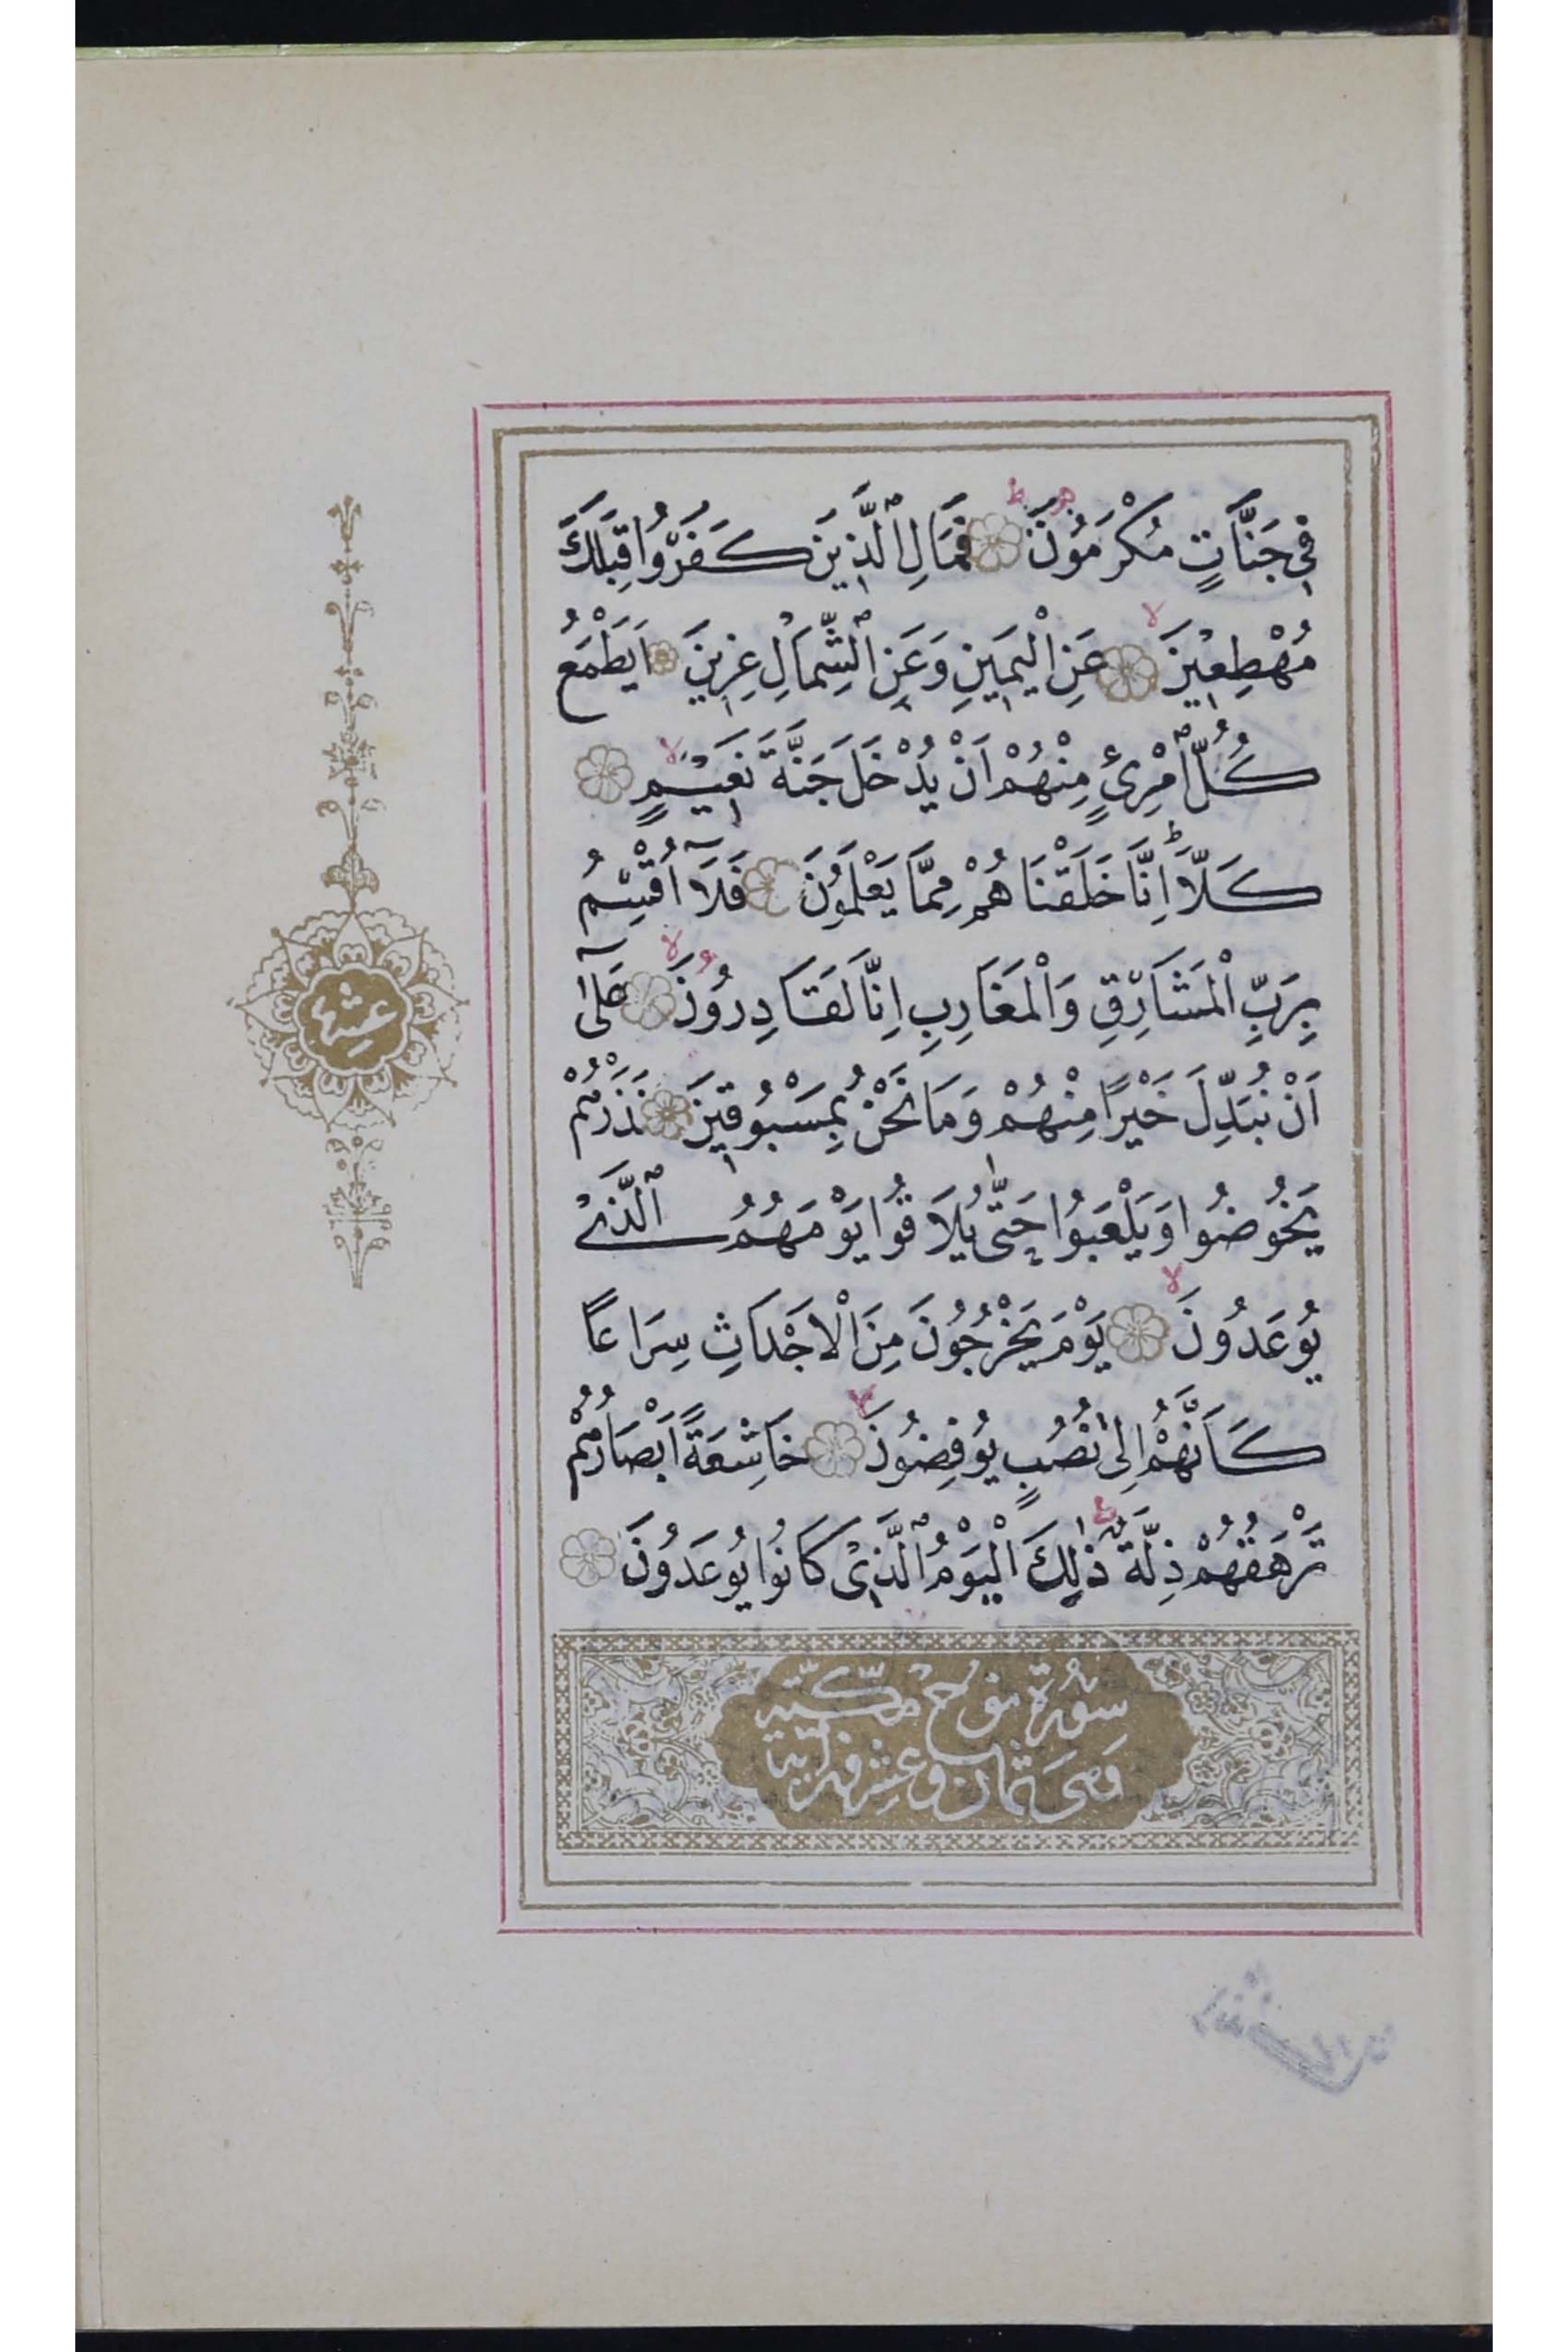 فِي جَنَّاتٍ مُكْرَمُونَ فَمَالِ الَّذِينَ كَفَرُوا قِبَلَكَ
مُهْطِعِينَ عَنِ الْيَمِينِ وَعَنِ الشِّمَالِ عِزِينَ اَيَطْمَعُ
كُلُّ امْرِئٍ مِنْهُمْ اَنْ يُدْخَلَ جَنَّةَ نَعِيمٍ
كَلَّا اِنَّا خَلَقْنَاهُمْ مِمَّا يَعْلَمُونَ فَلَآ اُقْسِمُ
بِرَبِّ الْمَشَارِقِ وَالْمَغَارِبِ اِنَّا لَقَادِرُونَ عَلٰٓى
اَنْ نُبَدِّلَ خَيْرًا مِنْهُمْ وَمَا نَحْنُ بِمَسْبُوقِينَ فَذَرْهُمْ
يَخُوضُوا وَيَلْعَبُوا حَتّٰى يُلَاقُوا يَوْمَهُمُ الَّذِي
يُوعَدُونَ يَوْمَ يَخْرُجُونَ مِنَ الْاَجْدَاثِ سِرَاعًا
كَاَنَّهُمْ اِلٰى نُصُبٍ يُوفِضُونَ خَاشِعَةً اَبْصَارُهُمْ
تَرْهَقُهُمْ ذِلَّةٌ ذٰلِكَ الْيَوْمُ الَّذِي كَانُوا يُوعَدُونَ
سورة نوح مكية
وهي ثمان وعشرون آية
عشر